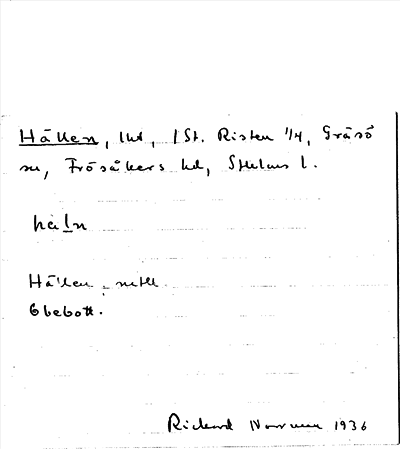 Hällen, lht, /St. Risten 1/4, Gräsö
sn, Frösåkers hd, Sthlms l.
häln
Hällen
Obebott.
Rickard Norman 1936